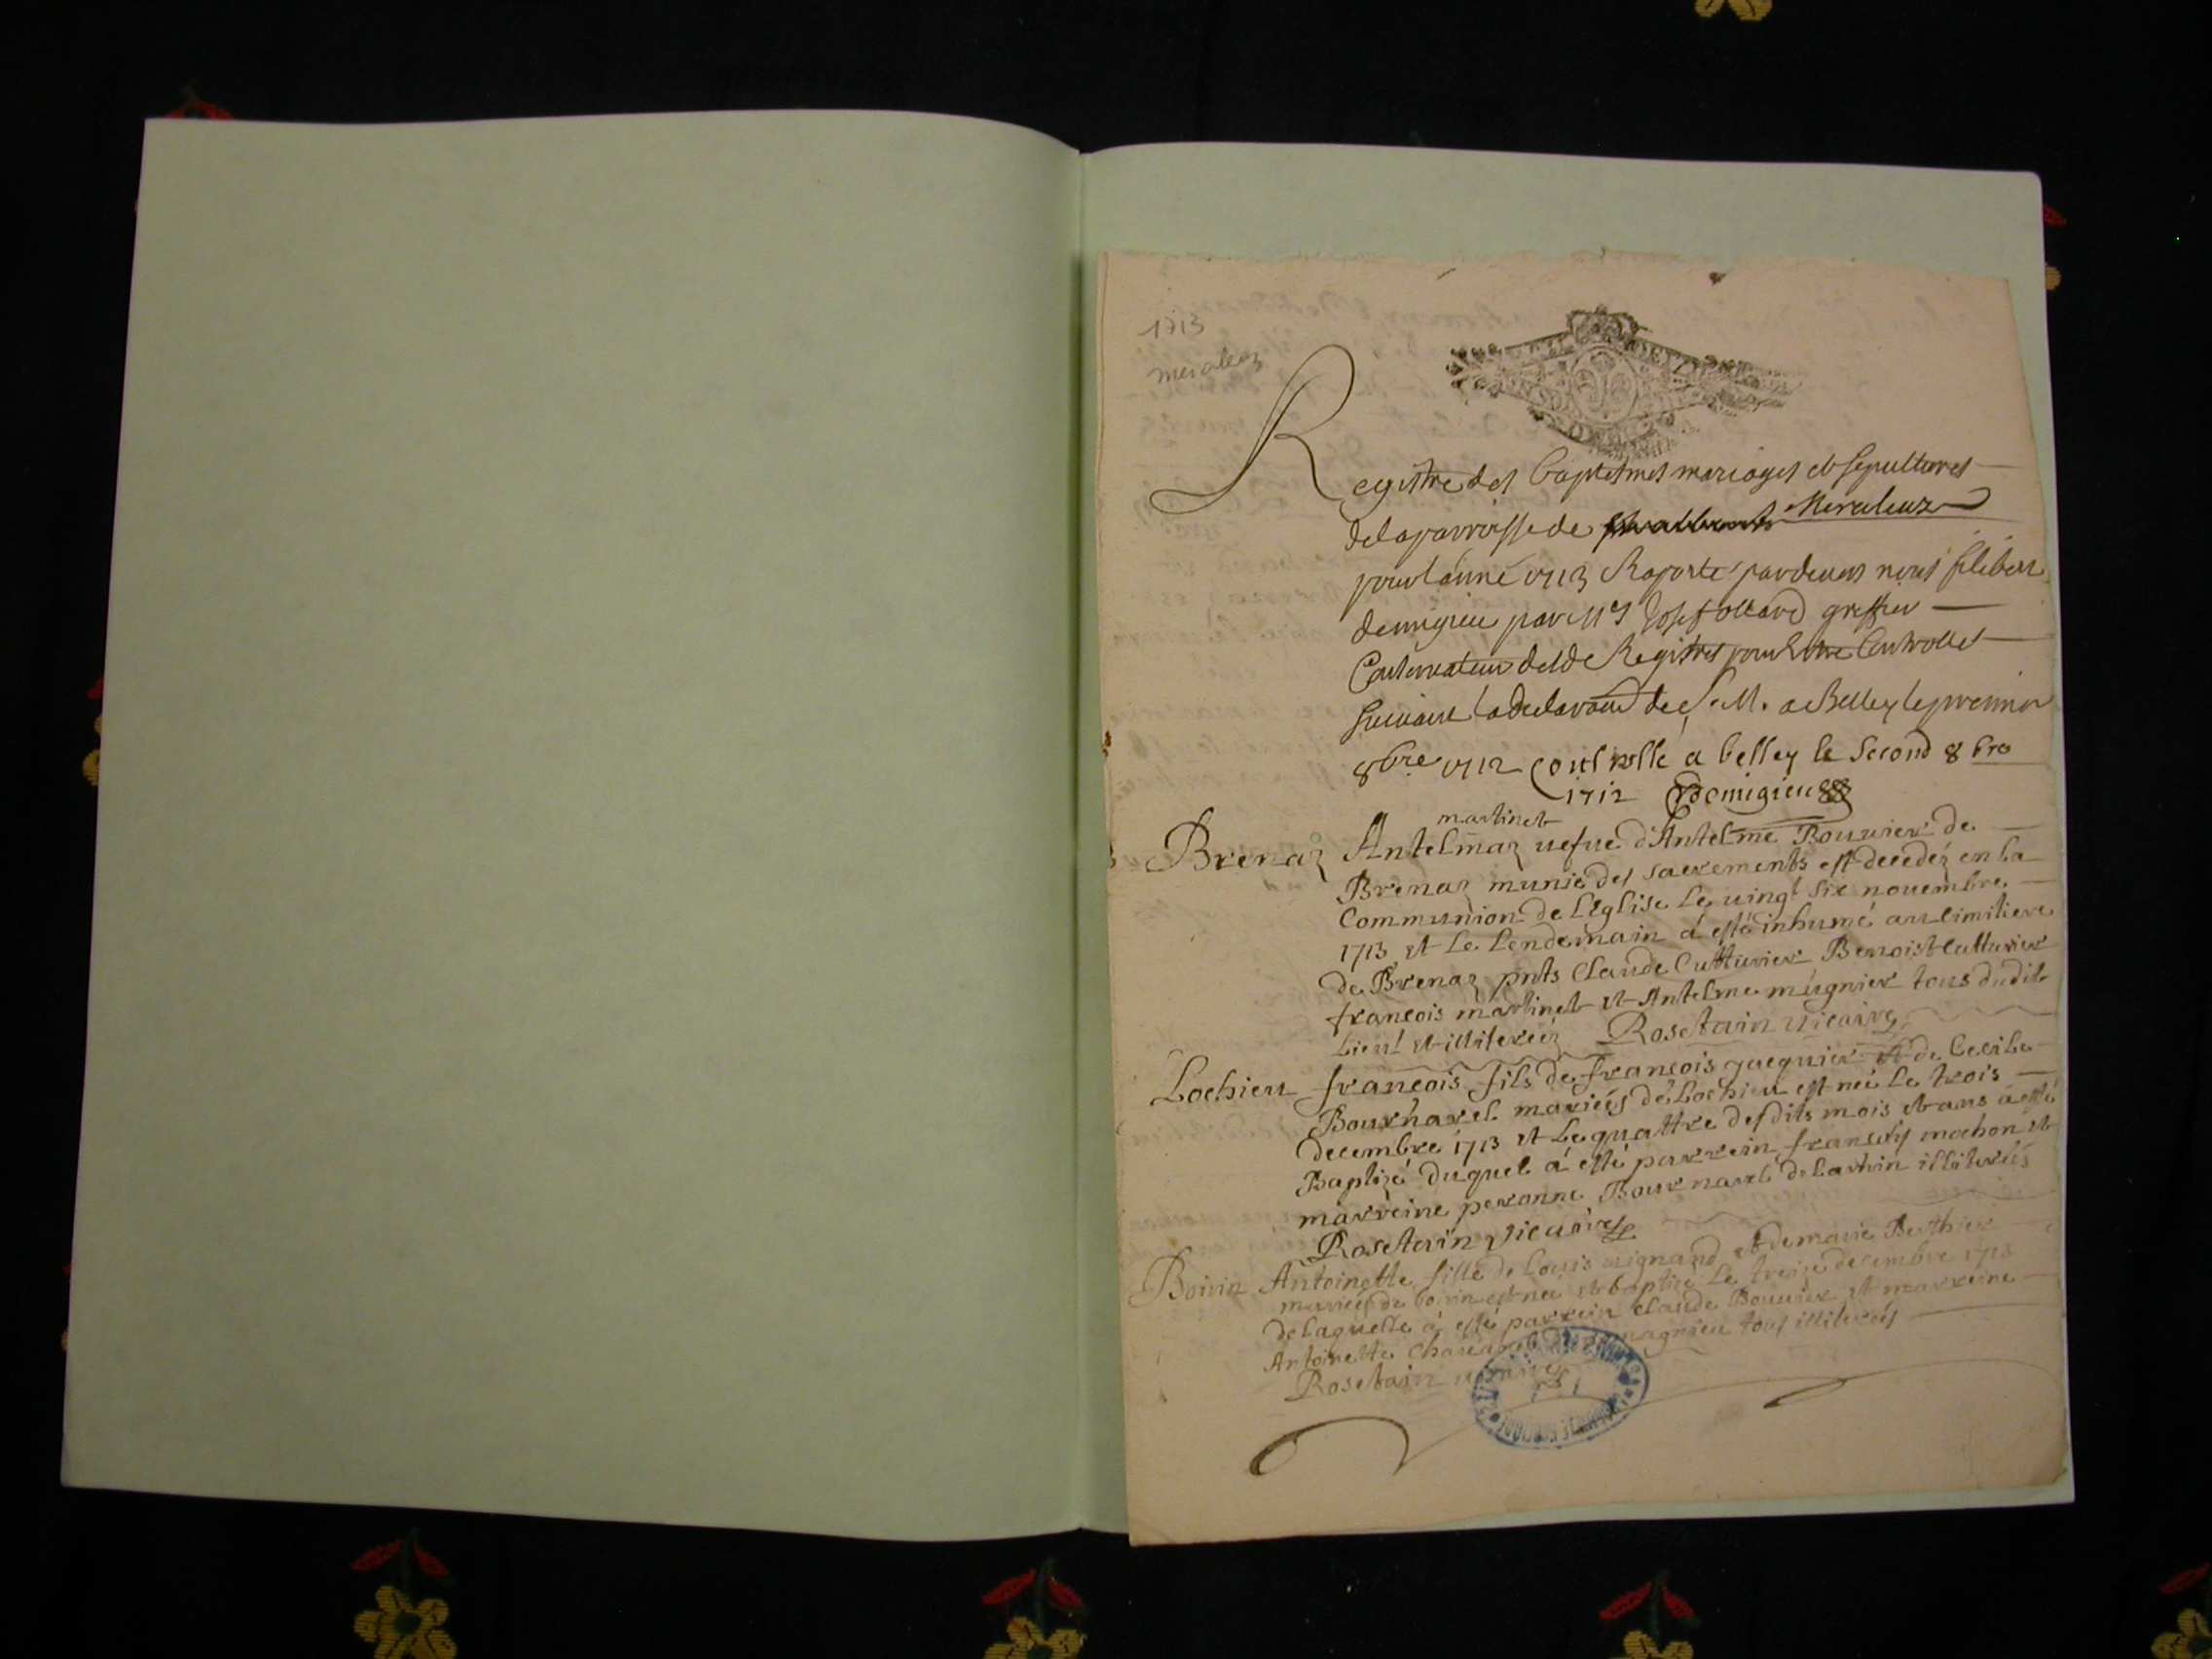 1713
meraleaz
Registre des baptesmes mariages et sepultures
de la parroisse de Meraleuz
pour lanné 1713 Raporte pardevans nous filibert
demigieu par Mre Josef ollard greffier
Conservateur desd Registres pour estre Controlles
suivant la declaraon de S. M. a Belley le premier
8bre 1712 Controlle a belley le second 8bre
1712 Demigieu
martinet
Brenaz Antelmaz uefue d'Antelme Bouuier de
Brenaz munie des sacrements est decedéz en la
Communion de l'Eglise le uingt six nouembre
1713 et le lendemain á esté inhumé au cimitiere
de Brenaz pnts Claude Cutturier Benoist Cutturier
francois martinet et Antelme mugnier tous dudit
Lieu et illiteréz Rosetain uicaire
Lochieu francois fils de francois gueguier et de Cecile
Bournarel mariées de Lochieu est neé le trois
decembre 1713 et le quattre desdits mois et ans a esté
Baptizé duquel á esté parrein mochon et
marreine peronne Bournarel de Lartin illiterés
Rosetain vicaire
Boirin Antoinette fille de Louis mignand et de marie Berthier
mariées de boirin est neé et baptizé le treize decembre 1713
de laquelle á esté parrein Claude Bouuier et marreine
Antoinette tous illiterés
Rosetain uicaire